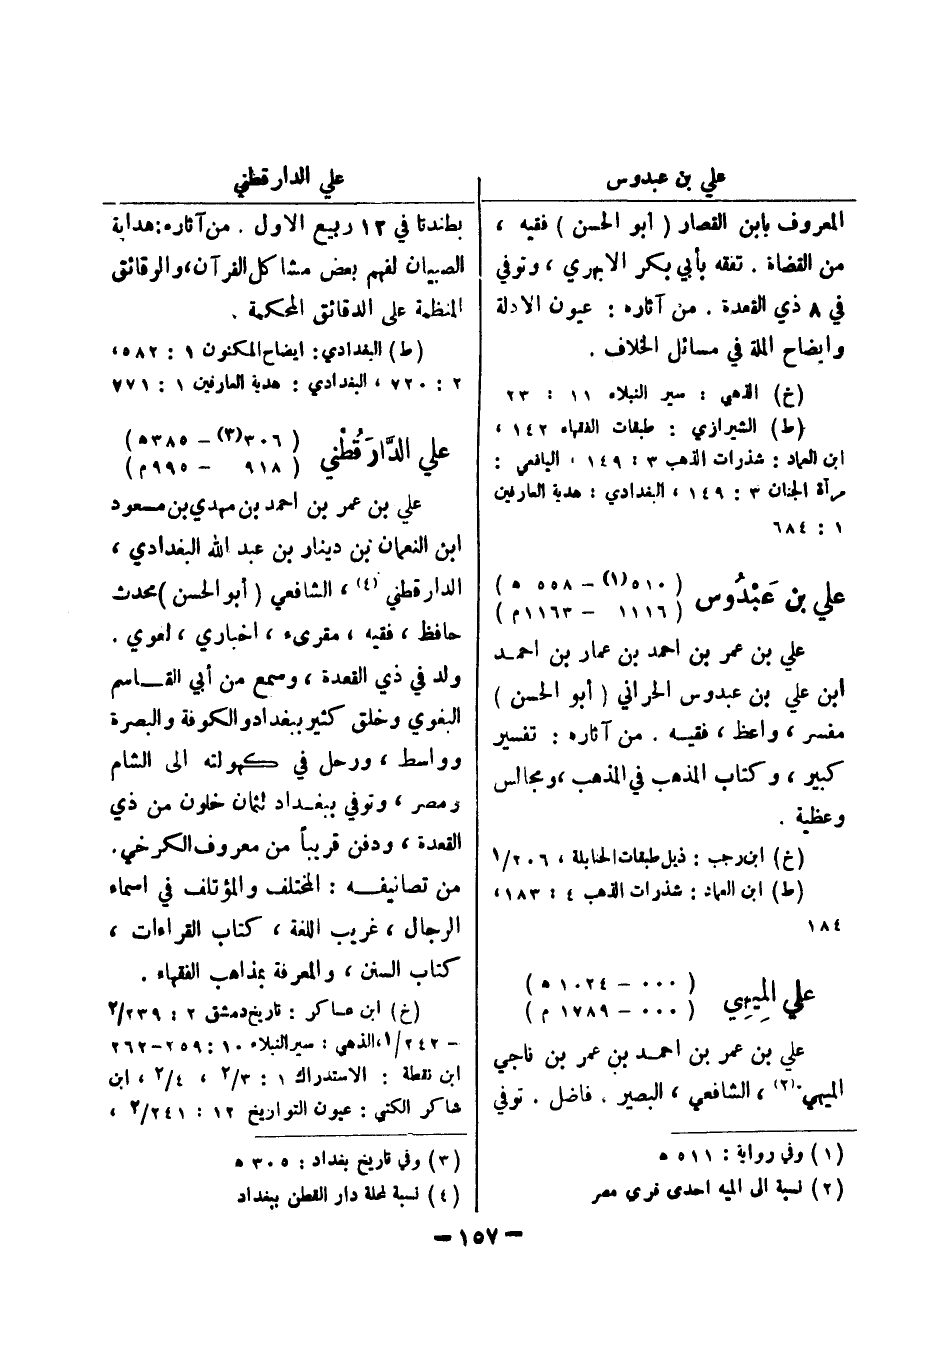 علي بن عبدوس
المعروف بابن القصار ( أبو الحسن ) فقيه ،
من القضاة . تفقه بأبي بكر الابهري ، وتوفي
في ٨ ذي القعدة . من آثاره : عيون الادلة
وايضاح الملة في مسائل الخلاف .
(خ) الذهبي : سير النبلاء ١١ : ٢٣
(ط) الشيرازي : طبقات الفقهاء ١٤٢ ،
ابن العماد : شذرات الذهب ٣ : ١٤٩ ، اليافعي :
مرآة الجنان ٣ : ١٤٩ ، البغدادي : هدية العارفين
١ : ٦٨٤
علي بن عَبْدُوس ( ٥١٠(١) – ٥٥٨ ه )
( ١١١٦ – ١١٦٣م )
علي بن عمر بن احمد بن عمار بن احمد
ابن علي بن عبدوس الحراني ( أبو الحسن )
مفسر ، واعظ ، فقيه . من آثاره : تفسير
كبير ، وكتاب المذهب في المذهب ، ومجالس
وعظية .
(خ) ابن رجب : ذيل طبقات الحنابلة ، ٢٠٦/١
(ط) ابن العماد : شذرات الذهب ٤ : ١٨٣،
١٨٤
علي الميهي ( ٠٠٠ – ١٠٢٤ ه )
( ٠٠٠ – ١٧٨٩ م )
علي بن عمر بن احمد بن عمر بن ناجي
الميهي (٢) ، الشافعي ، البصير . فاضل . توفي
(١) وفي رواية : ٥١١ ه
(٢) نسبة الى الميه احدى قرى مصر
علي الدارقطني
بطندتا في ١٢ ربيع الاول . من آثاره: هداية
الصبيان لفهم بعض مشاكل القرآن، والرقائق
المنظمة على الدقائق المحكمة .
(ط) البغدادي : ايضاح المكنون ١ : ٥٨٢،
٢ : ٧٢٠ ، البغدادي : هدية العارفين ١ : ٧٧١
علي الدَّارَقُطْني ( ٣٠٦(٣) – ٣٨٥ه )
( ٩١٨ – ٩٩٥م )
علي بن عمر بن احمد بن مهدي بن مسعود
ابن النعمان بن دينار بن عبد الله البغدادي ،
الدارقطني (٤) ، الشافعي ( أبو الحسن ) محدث
حافظ ، فقيه ، مقرىء ، اخباري ، لغوي .
ولد في ذي القعدة ، وسمع من أبي القاسم
البغوي وخلق كثير ببغداد والكوفة والبصرة
وواسط ، ورحل في كهولته الى الشام
ومصر ، وتوفي ببغداد لثمان خلون من ذي
القعدة ، ودفن قريباً من معروف الكرخي .
من تصانيفه : المختلف والمؤتلف في اسماء
الرجال ، غريب اللغة ، كتاب القراءات ،
كتاب السنن ، والمعرفة بمذاهب الفقهاء .
(خ) ابن عساكر : تاريخ دمشق ٢ : ٢٣٩/٢
– ٢٤٢/١، الذهبي : سير النبلاء ١٠ : ٢٥٩–٢٦٢
ابن نقطة : الاستدراك ١ : ٣/٢ ، ٤/٢ ، ابن
شاكر الكتبي : عيون التواريخ ١٢ : ٢٤١/٢ ،
(٣) وفي تاريخ بغداد : ٣٠٥ ه
(٤) نسبة لمحلة دار القطن ببغداد
– ١٥٧ –